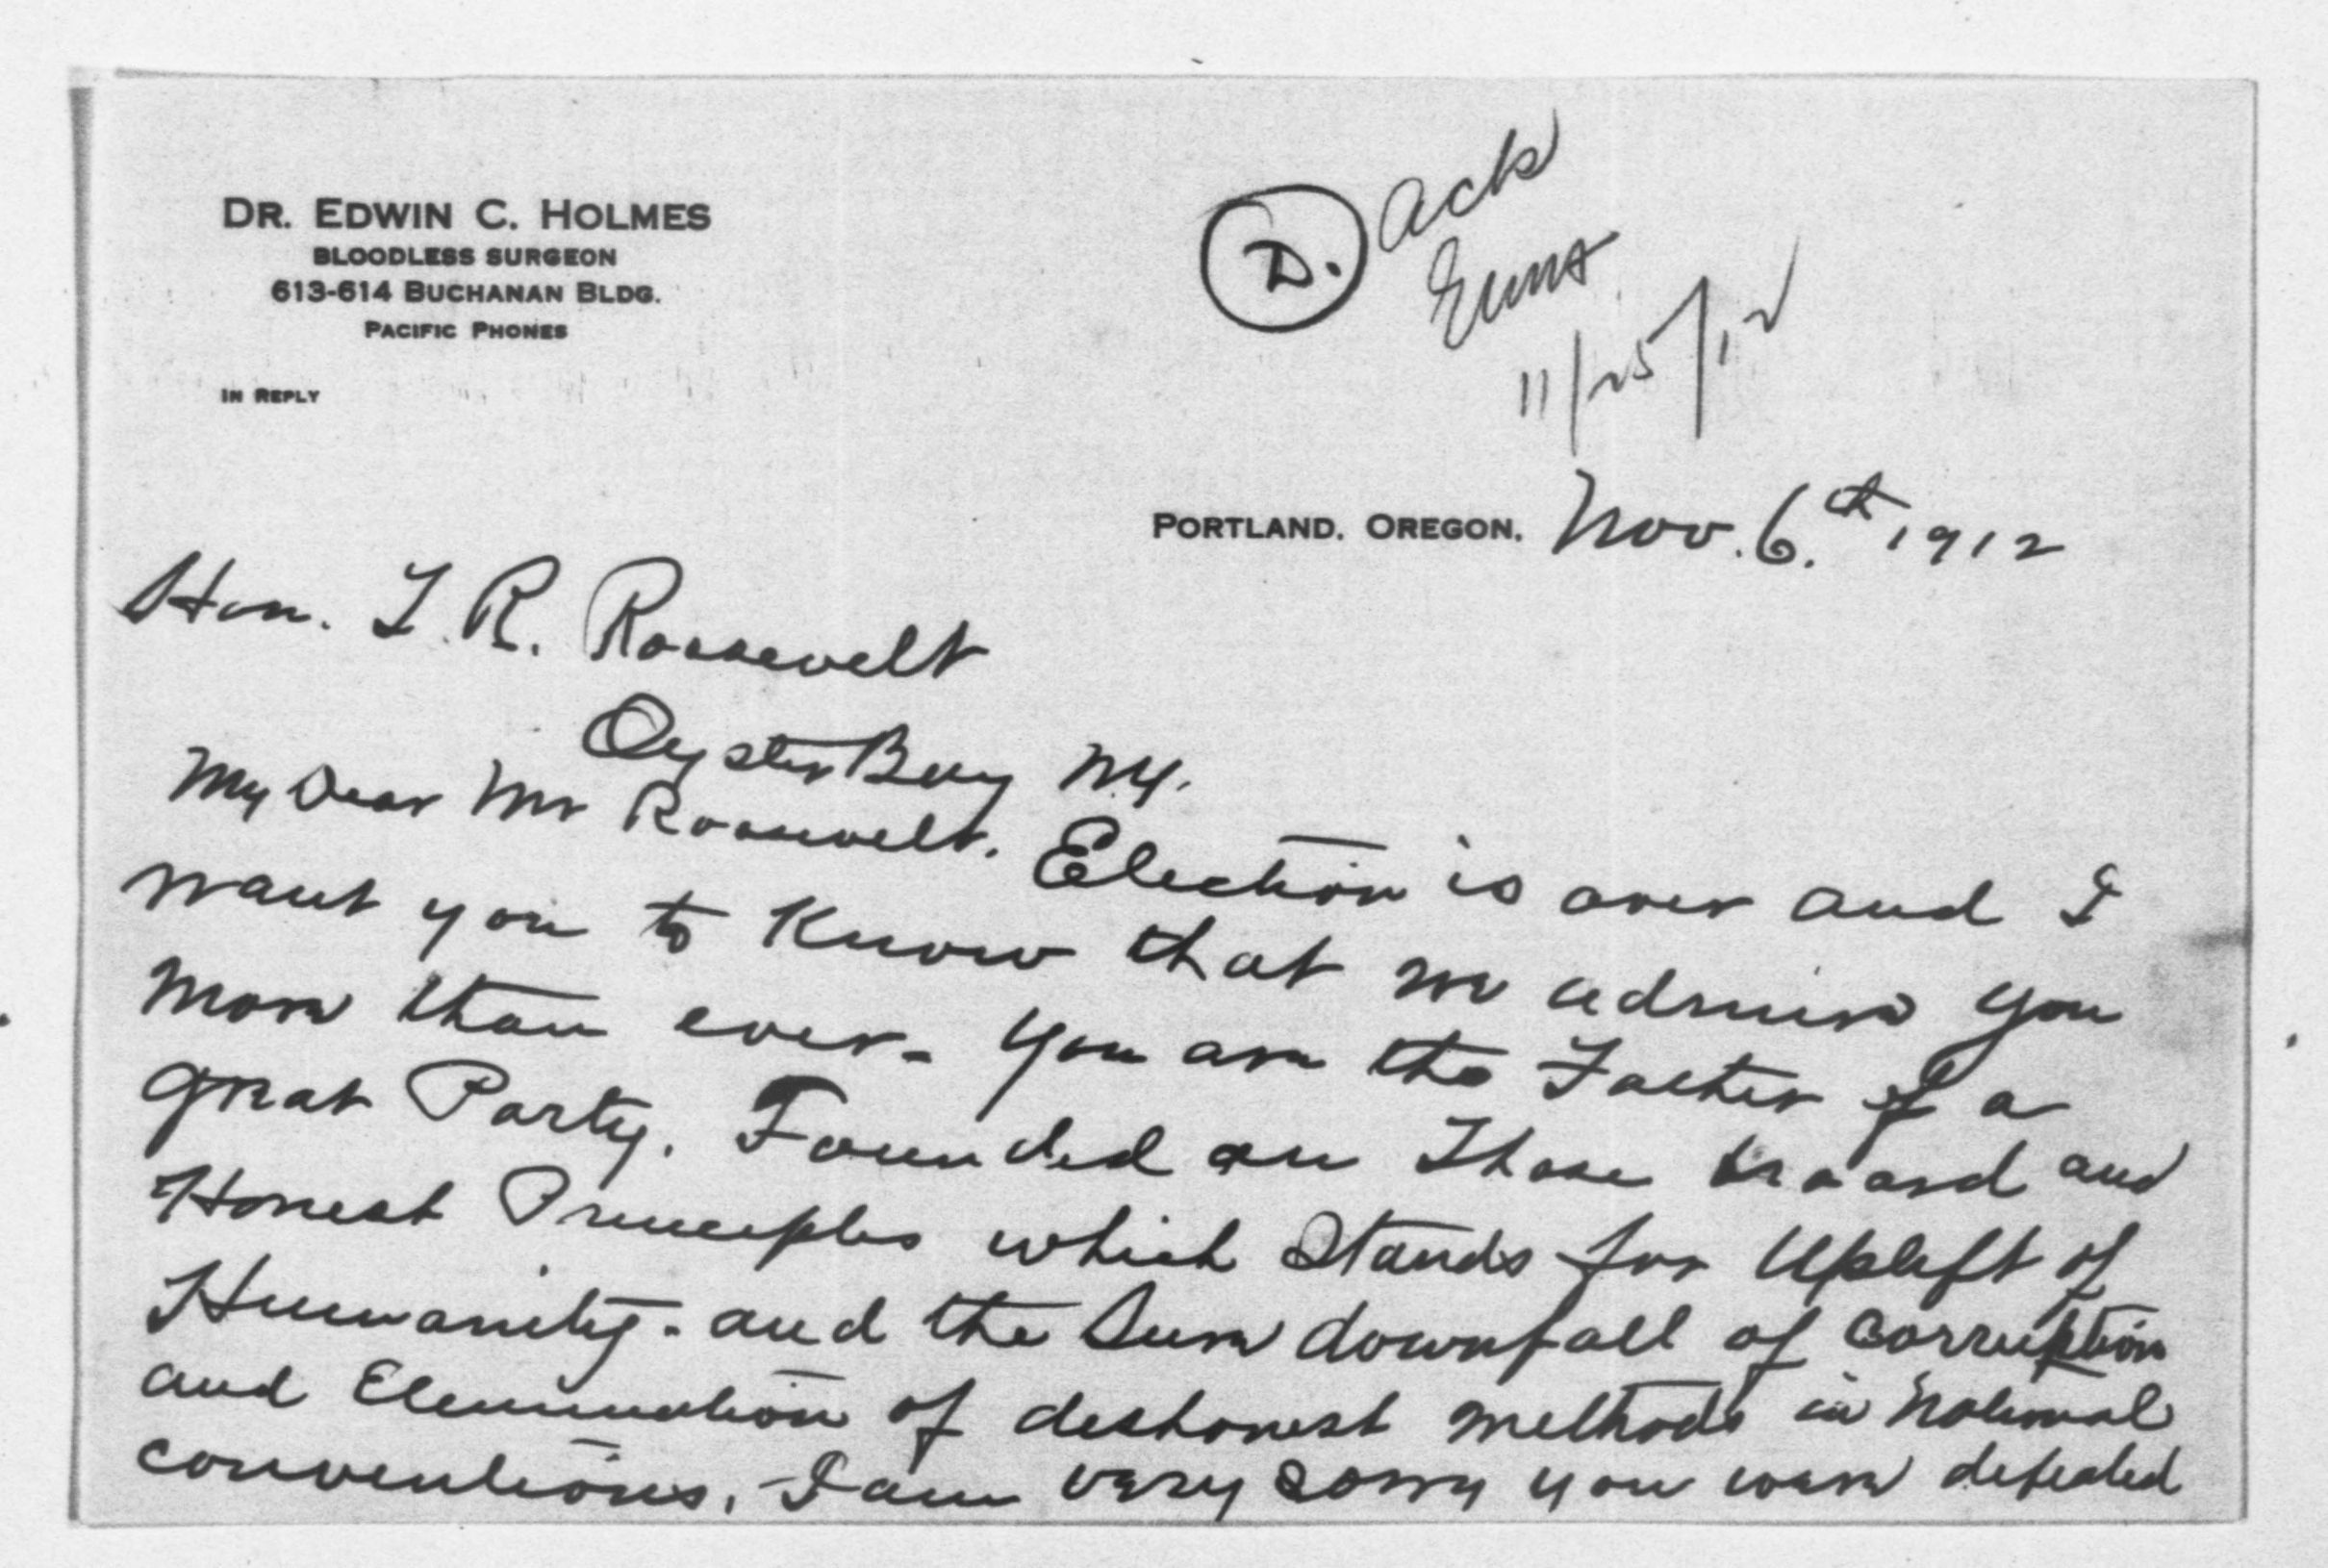 DR. EDWIN C. HOLMES
BLOODLESS SURGEON
613-614 BUCHANAN BLDG.
PACIFIC PHONES
IN REPLY
D. Ack
11/25/12
PORTLAND, OREGON, Nov. 6.th 1912
Hon. T. R. Roosevelt
Oyster Bay N.Y.
My Dear Mr Roosevelt. Election is over and I
want you to Know that we admire you
more than ever. You are the Father of a
great Party. Founded on Those broard and
Honest Principles which Stands for Uplift of
Humanity. and the Sure downfall of corruption
and Elemination of deshonest methods in National
conventions. I am very sorry you were defeated